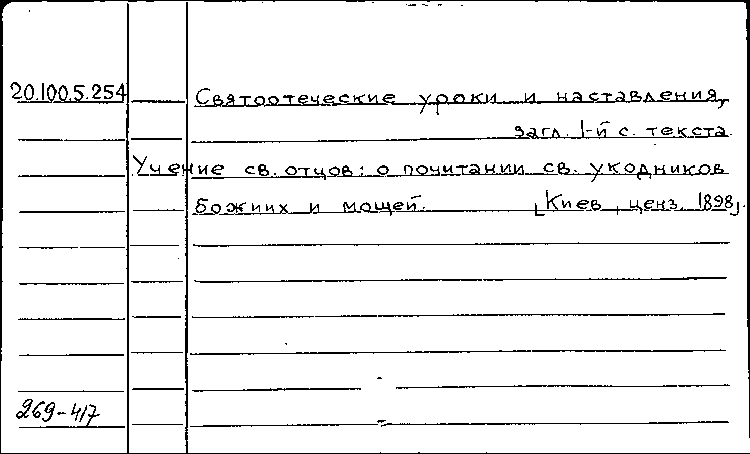 20.100.5.254 Святоотеческие уроки и наставления,
загл. 1-й с. текста.
Учение св. отцов: о почитании св. укодников
Божиих и мощей. [Киев, ценз. 1898].
269-417